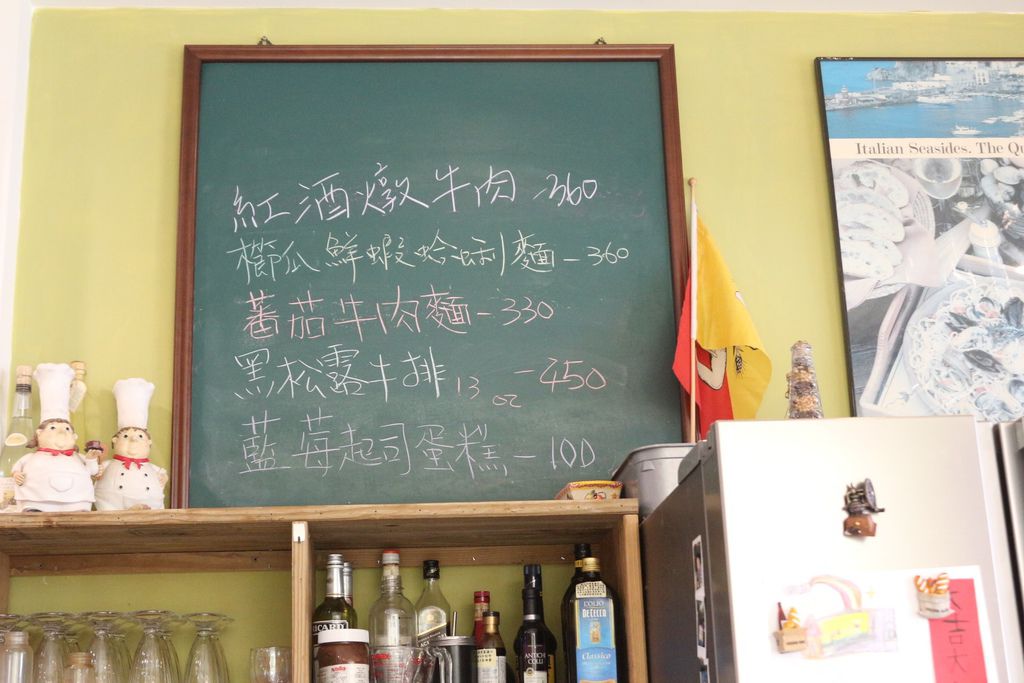 紅酒燉牛肉 360
櫛瓜鮮蝦蛤蜊麵 - 360
蕃茄牛肉麵 - 330
黑松露牛排 13 oz - 450
藍莓起司蛋糕 - 100
Italian Seasides. The Qu
ICARD
L'OLIO
DE CECCO
Classico
ANTICHI
COLLI